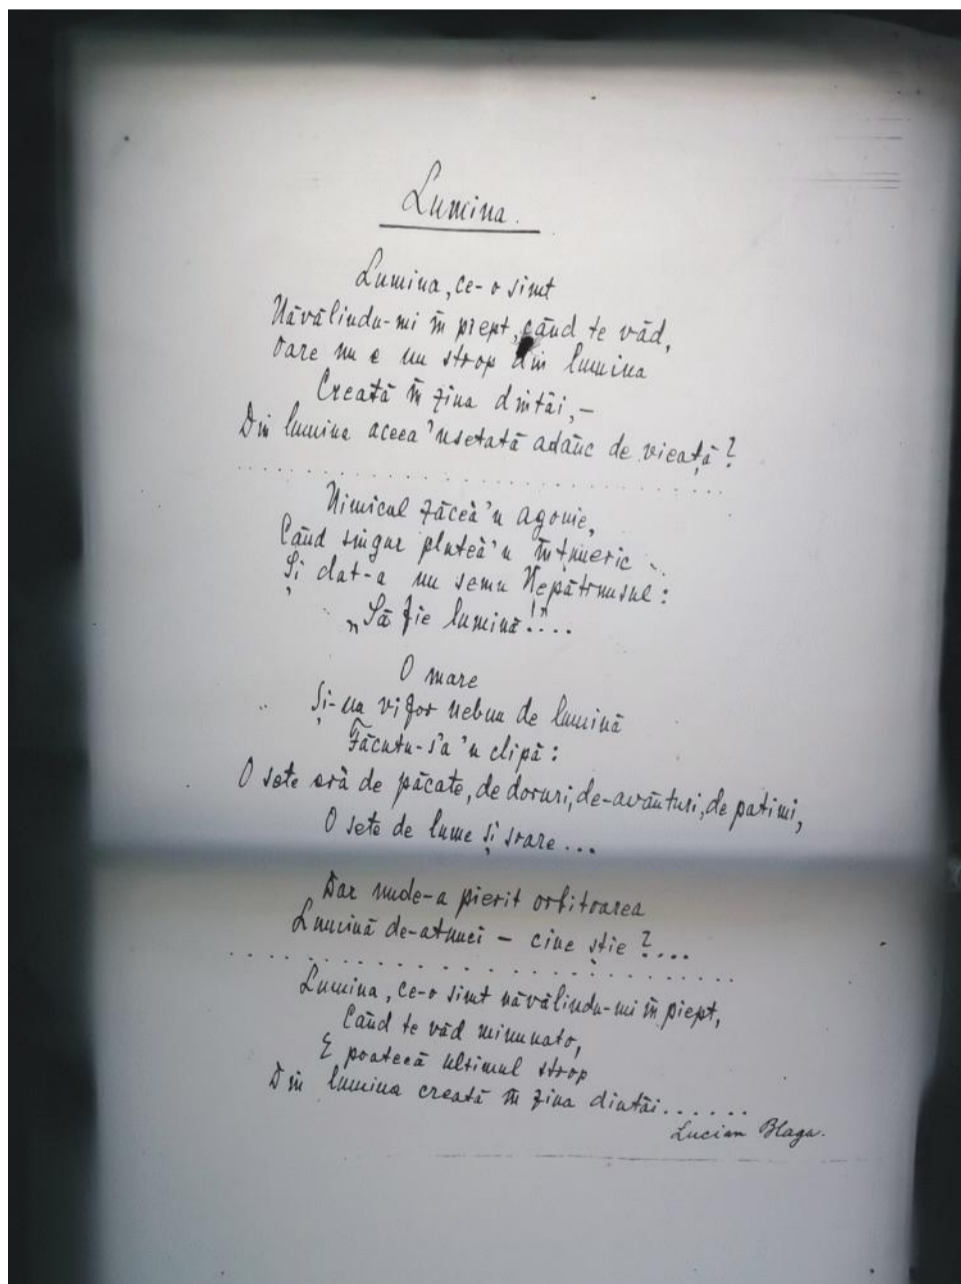 Lumina.
Lumina, ce-o simt
Năvălindu-mi în piept, când te văd,
Oare nu e un strop din lumina
Creată în ziua dintâi,-
Din lumina aceea 'nsetată adânc de vieață?
. . . . . . . . . . . . . . . . . . . . . . . . . . . . . .
Nimicul zăceà 'n agonie,
Când singur pluteà 'n întuneric ..
Și dat-a un semn Nepătrunsul:
„Să fie lumină!"...
O mare
Și-un vifor nebun de lumină
Făcutu-s'a 'n clipă:
O sete erà de păcate, de doruri, de-avânturi, de patimi,
O sete de lume și soare...
Dar unde-a pierit orbitoarea
Lumină de-atunci – cine știe?....
. . . . . . . . . . . . . . . . . . . . . . . . . . . . . .
Lumina, ce-o simt năvălindu-mi în piept,
Când te văd minunato,
E poatecă ultimul strop
Din lumina creată în ziua dintâi......
Lucian Blaga.